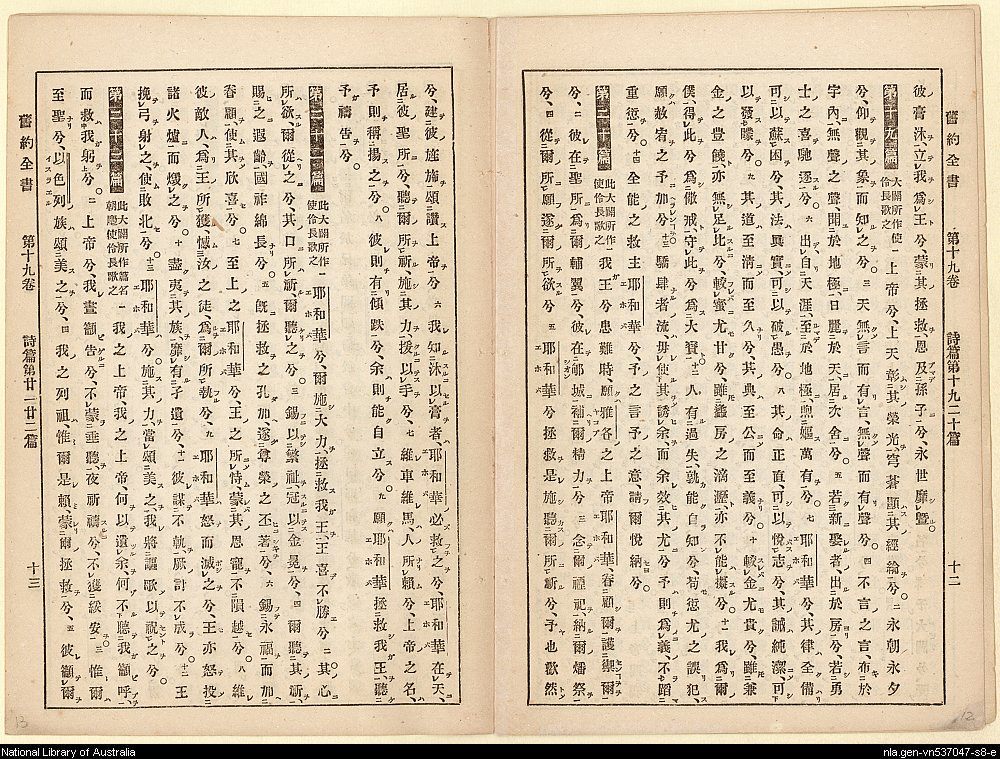 舊約全書　第十九卷　詩篇第十九二十篇　十二
彼膏沐、立我爲王兮、蒙其拯救、恩及孫子兮、永世靡曁。
第十九篇 大闢所作使伶長歌之 一 上帝兮、上天彰其榮光、穹蒼顯其經綸兮。二 永朝永夕
兮、仰觀其象而知之兮。三 天無言而有言、無聲而有聲兮。四 不言之言、布於
宇內、無聲之聲、聞於地極、日麗於天、居次舍兮。五 若新娶者、出於房兮、若勇
士之喜馳逐兮。六 出自天涯、至於地極、煦嫗萬有兮。七 耶和華兮、其律全備、
可以蘇困兮、其法眞實、可以破愚兮。八 其命正直、可以悅志兮、其誡純潔、可
以發矇兮。九 其道至淸、而至久兮、其典至公、而至義兮。十 較金尤貴兮、雖兼
金之豐饒、亦無足比兮、較蜜尤甘兮、雖蠭房之滴瀝、亦不能擬兮。十一 我爲爾
僕、得此兮爲儆戒、守此兮爲大賚兮。十二 人有過失、孰能自知兮、苟愆尤之誤犯、
願赦宥之予加兮。十三 驕肆者流、毋使其誘余、而余效其尤兮、予則爲義、不蹈
重愆兮。十四 全能之救主耶和華兮、予之言、予之意、請爾悅納兮。
第二十篇 此大闢所作使伶長歌之 一 我王兮、患難時、願雅各之上帝耶和華、眷顧爾護衛爾
兮、二 彼在聖所、爲爾輔翼兮、彼在郇城、補爾精力兮。三 念爾禋祀、納爾燔祭
兮、四 從爾所願、遂爾所欲兮、五 耶和華兮、拯救是施、聽爾所祈兮、予也歡然
兮、建彼旌旆、頌讚上帝兮、六 我知沐以膏者、耶和華必救之兮、耶和華在天、
居彼聖所兮、聽爾所祈、施其力、援以手兮、七 維車維馬、人所賴兮、上帝之名、
予則稱揚之兮。八 彼則有傾跌兮、余則能自立兮。九 願耶和華拯救我王、聽
予禱告兮。
第二十一篇 此大闢所作使伶長歌之 一 耶和華兮、爾施大力、拯救我王、王喜不勝兮、二 其心
所欲、爾從之兮、其口所祈、爾聽之兮。三 錫以繁祉、冠以金冕兮、四 爾聽其祈、
賜之遐齡、國祚綿長兮。五 旣拯救之孔加、遂尊榮之丕著兮、六 錫永福而加
眷顧、使其欣喜兮。七 至上之耶和華兮、王之所恃、蒙其恩寵、不隕越兮。八 維
彼敵人、爲王所獲、憾汝之徒、爲爾所執兮、九 耶和華怒而滅之兮、王亦怒投
諸火爐而燬之兮。十 盡夷其族、靡有孑遺兮、十一 彼謀不軌、厥計不成兮。十二 王
挽弓射之、使敗北兮。十三 耶和華兮、施其力、當頌美之、我將謳歌以祝之兮。
第二十二篇 此大闢所作篇名朝鹿使伶長歌之 一 我之上帝、我之上帝、何以遺余、何不聽我籲呼、
而救我躬兮。二 上帝兮、我晝籲告兮、不蒙垂聽、夜祈禱兮、不獲綏安。三 惟爾
至聖兮、以色列族、頌美之兮、四 我之列祖、惟爾是賴、蒙爾拯救兮、五 彼籲爾
舊約全書　第十九卷　詩篇第廿一廿二篇　十三
13
12
National Library of Australia
nla.gen-vn537047-s8-e